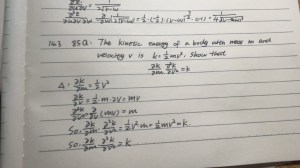 ∂z/∂u∂v 2√v-u
∂²z/∂v∂u = ∂/∂v 1/2√v-u = 1/2·(-1/2)·(v-u)
14.3 85Q: The kinetic energy of a body with mass m and
velocity v is k=½mv². Show that
∂k/∂m ∂²k/∂v² = k
A: ∂k/∂m = ½v²
∂k/∂v = ½·m·2v = mv
∂²k/∂v² = ∂/∂v (mv) = m
So, ∂k/∂m ∂²k/∂v² = ½v²m = ½mv² = k.
So, ∂k/∂m ∂²k/∂v² = k